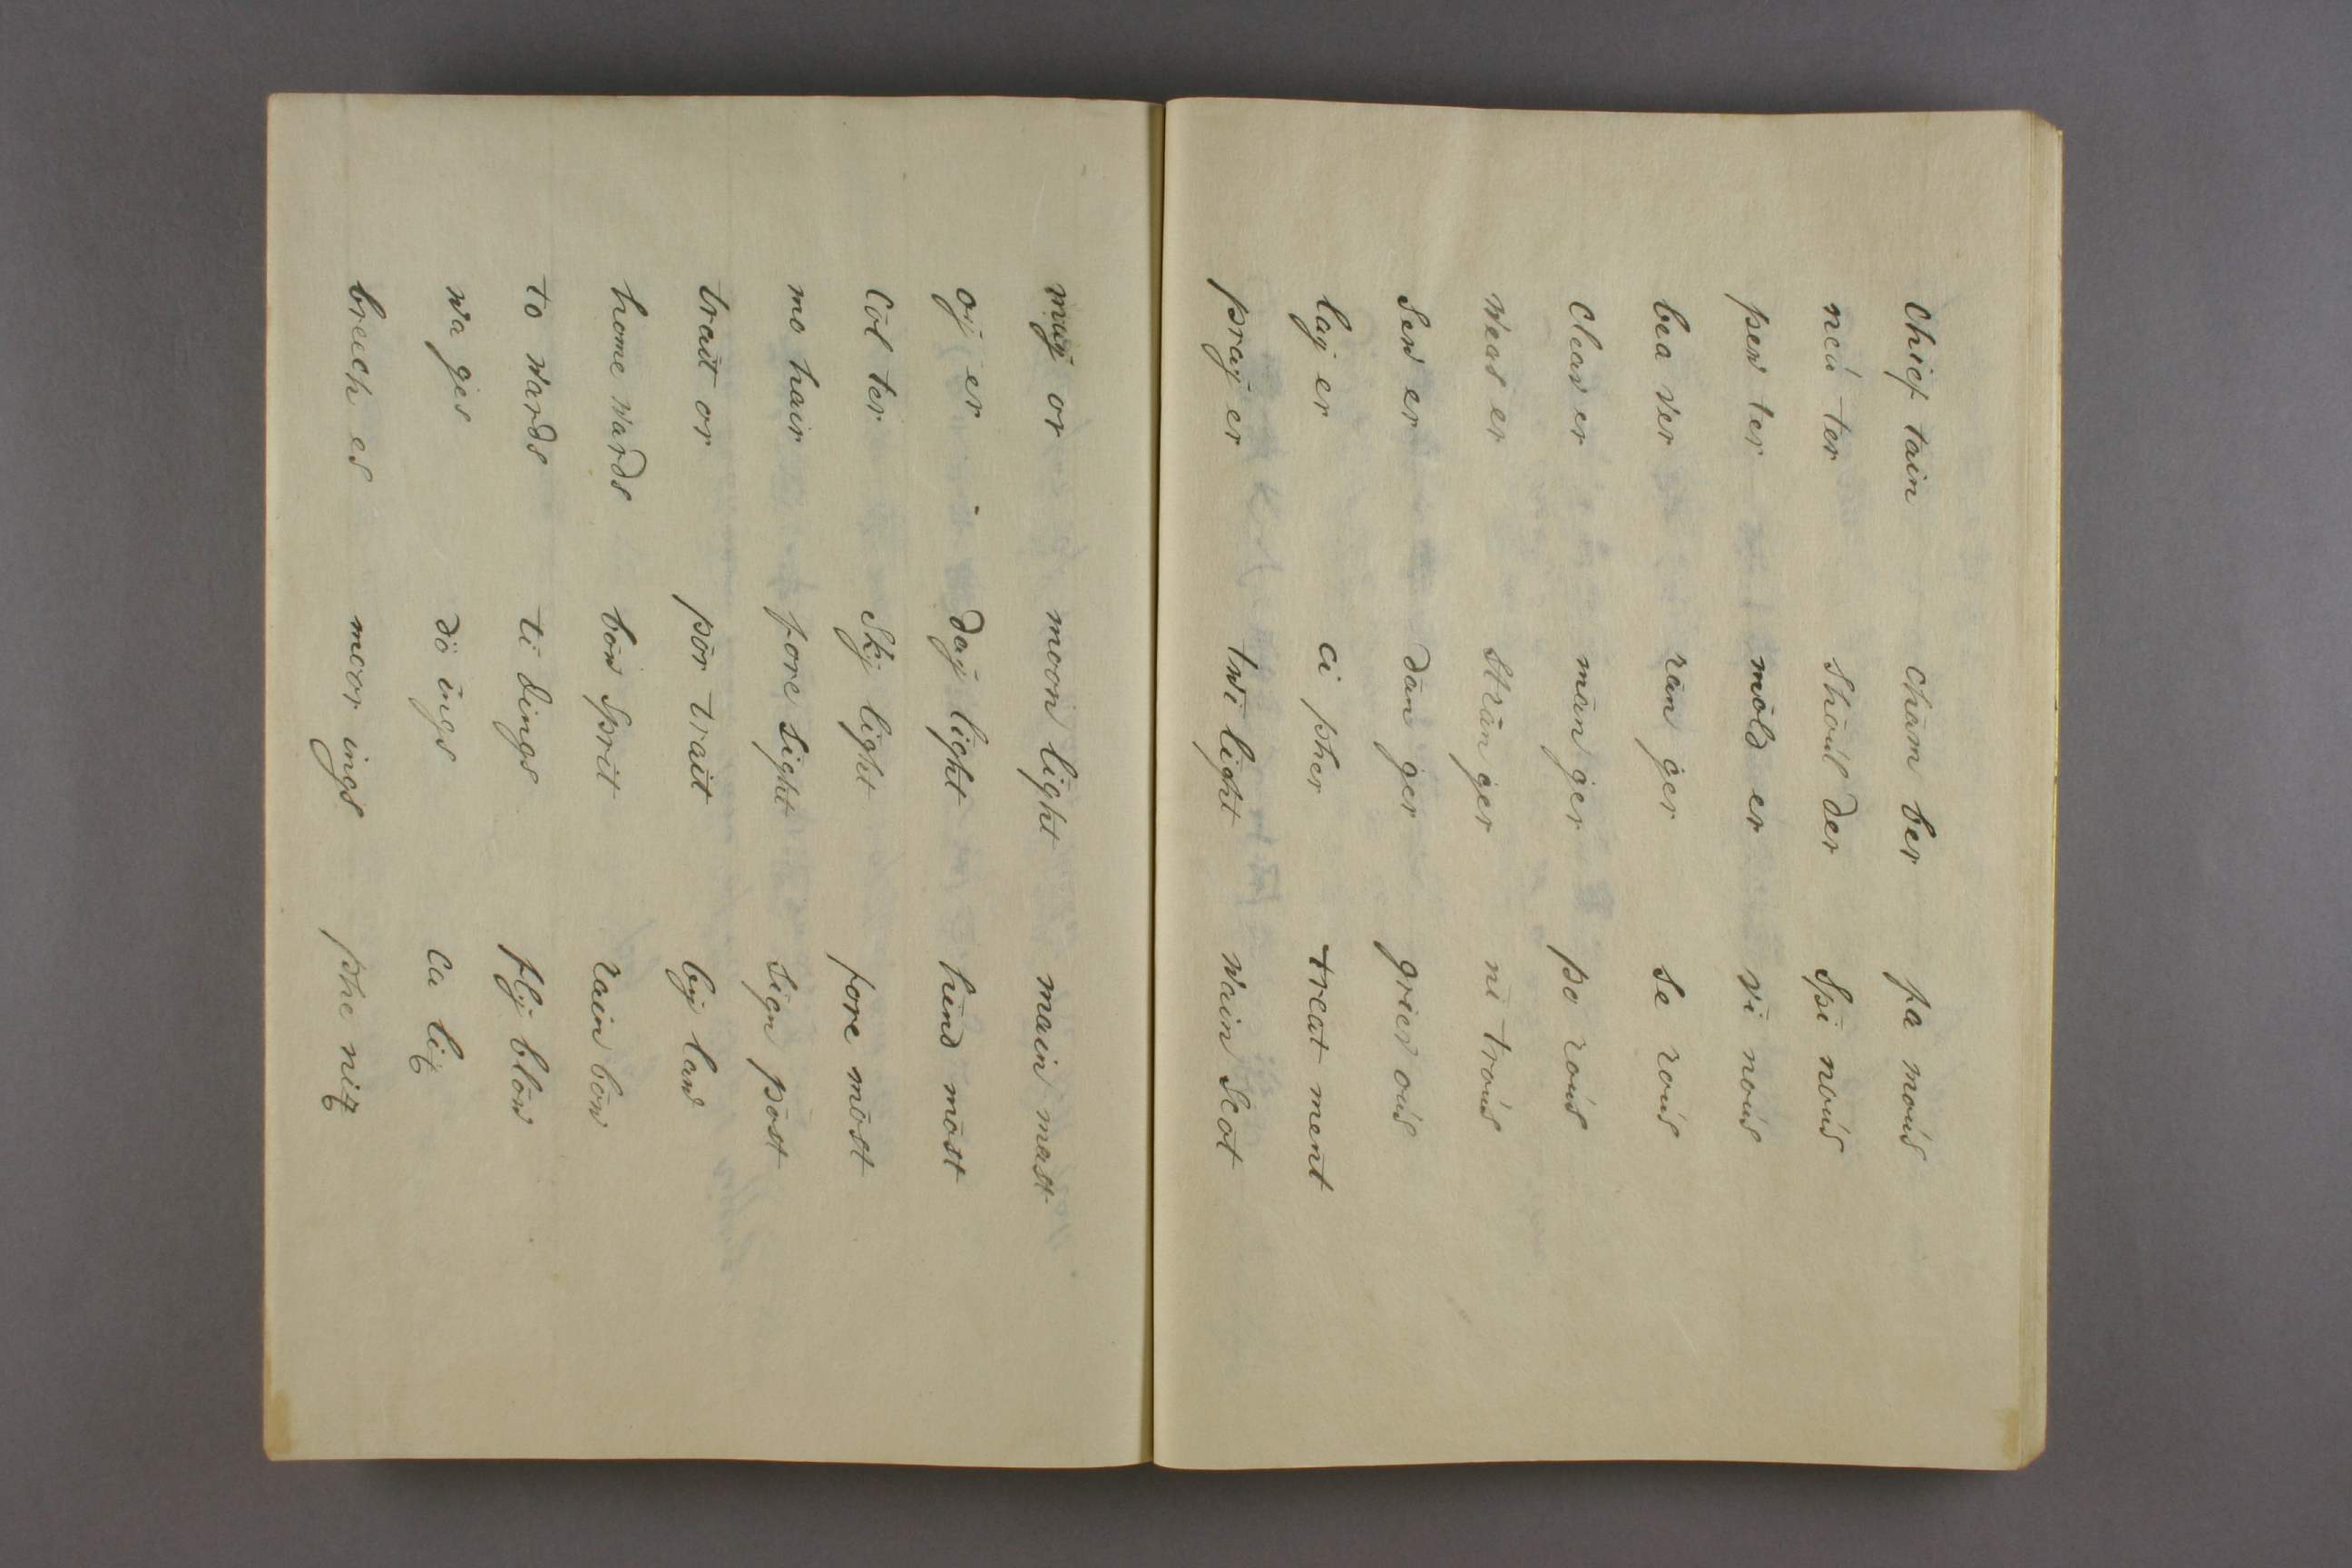 chief tain cham ber fa mous
neu ter shoul der spi nous
pew ter mold er vi nous
bea ver ran ger se rous
cleav er man ger po rous
weav er stran ger ni trous
sew er dan ger griev ous
lay er ci pher treat ment
pray er twi light wain scot
may or moon light main mast
oy er day light hind most
col ter sky light fore most
mo hair fore sight sign post
trait or por trait by law
home wards bow sprit rain bow
to wards ti dings fly blow
wa ges do ings ca lix
breech es moor ings phe nix